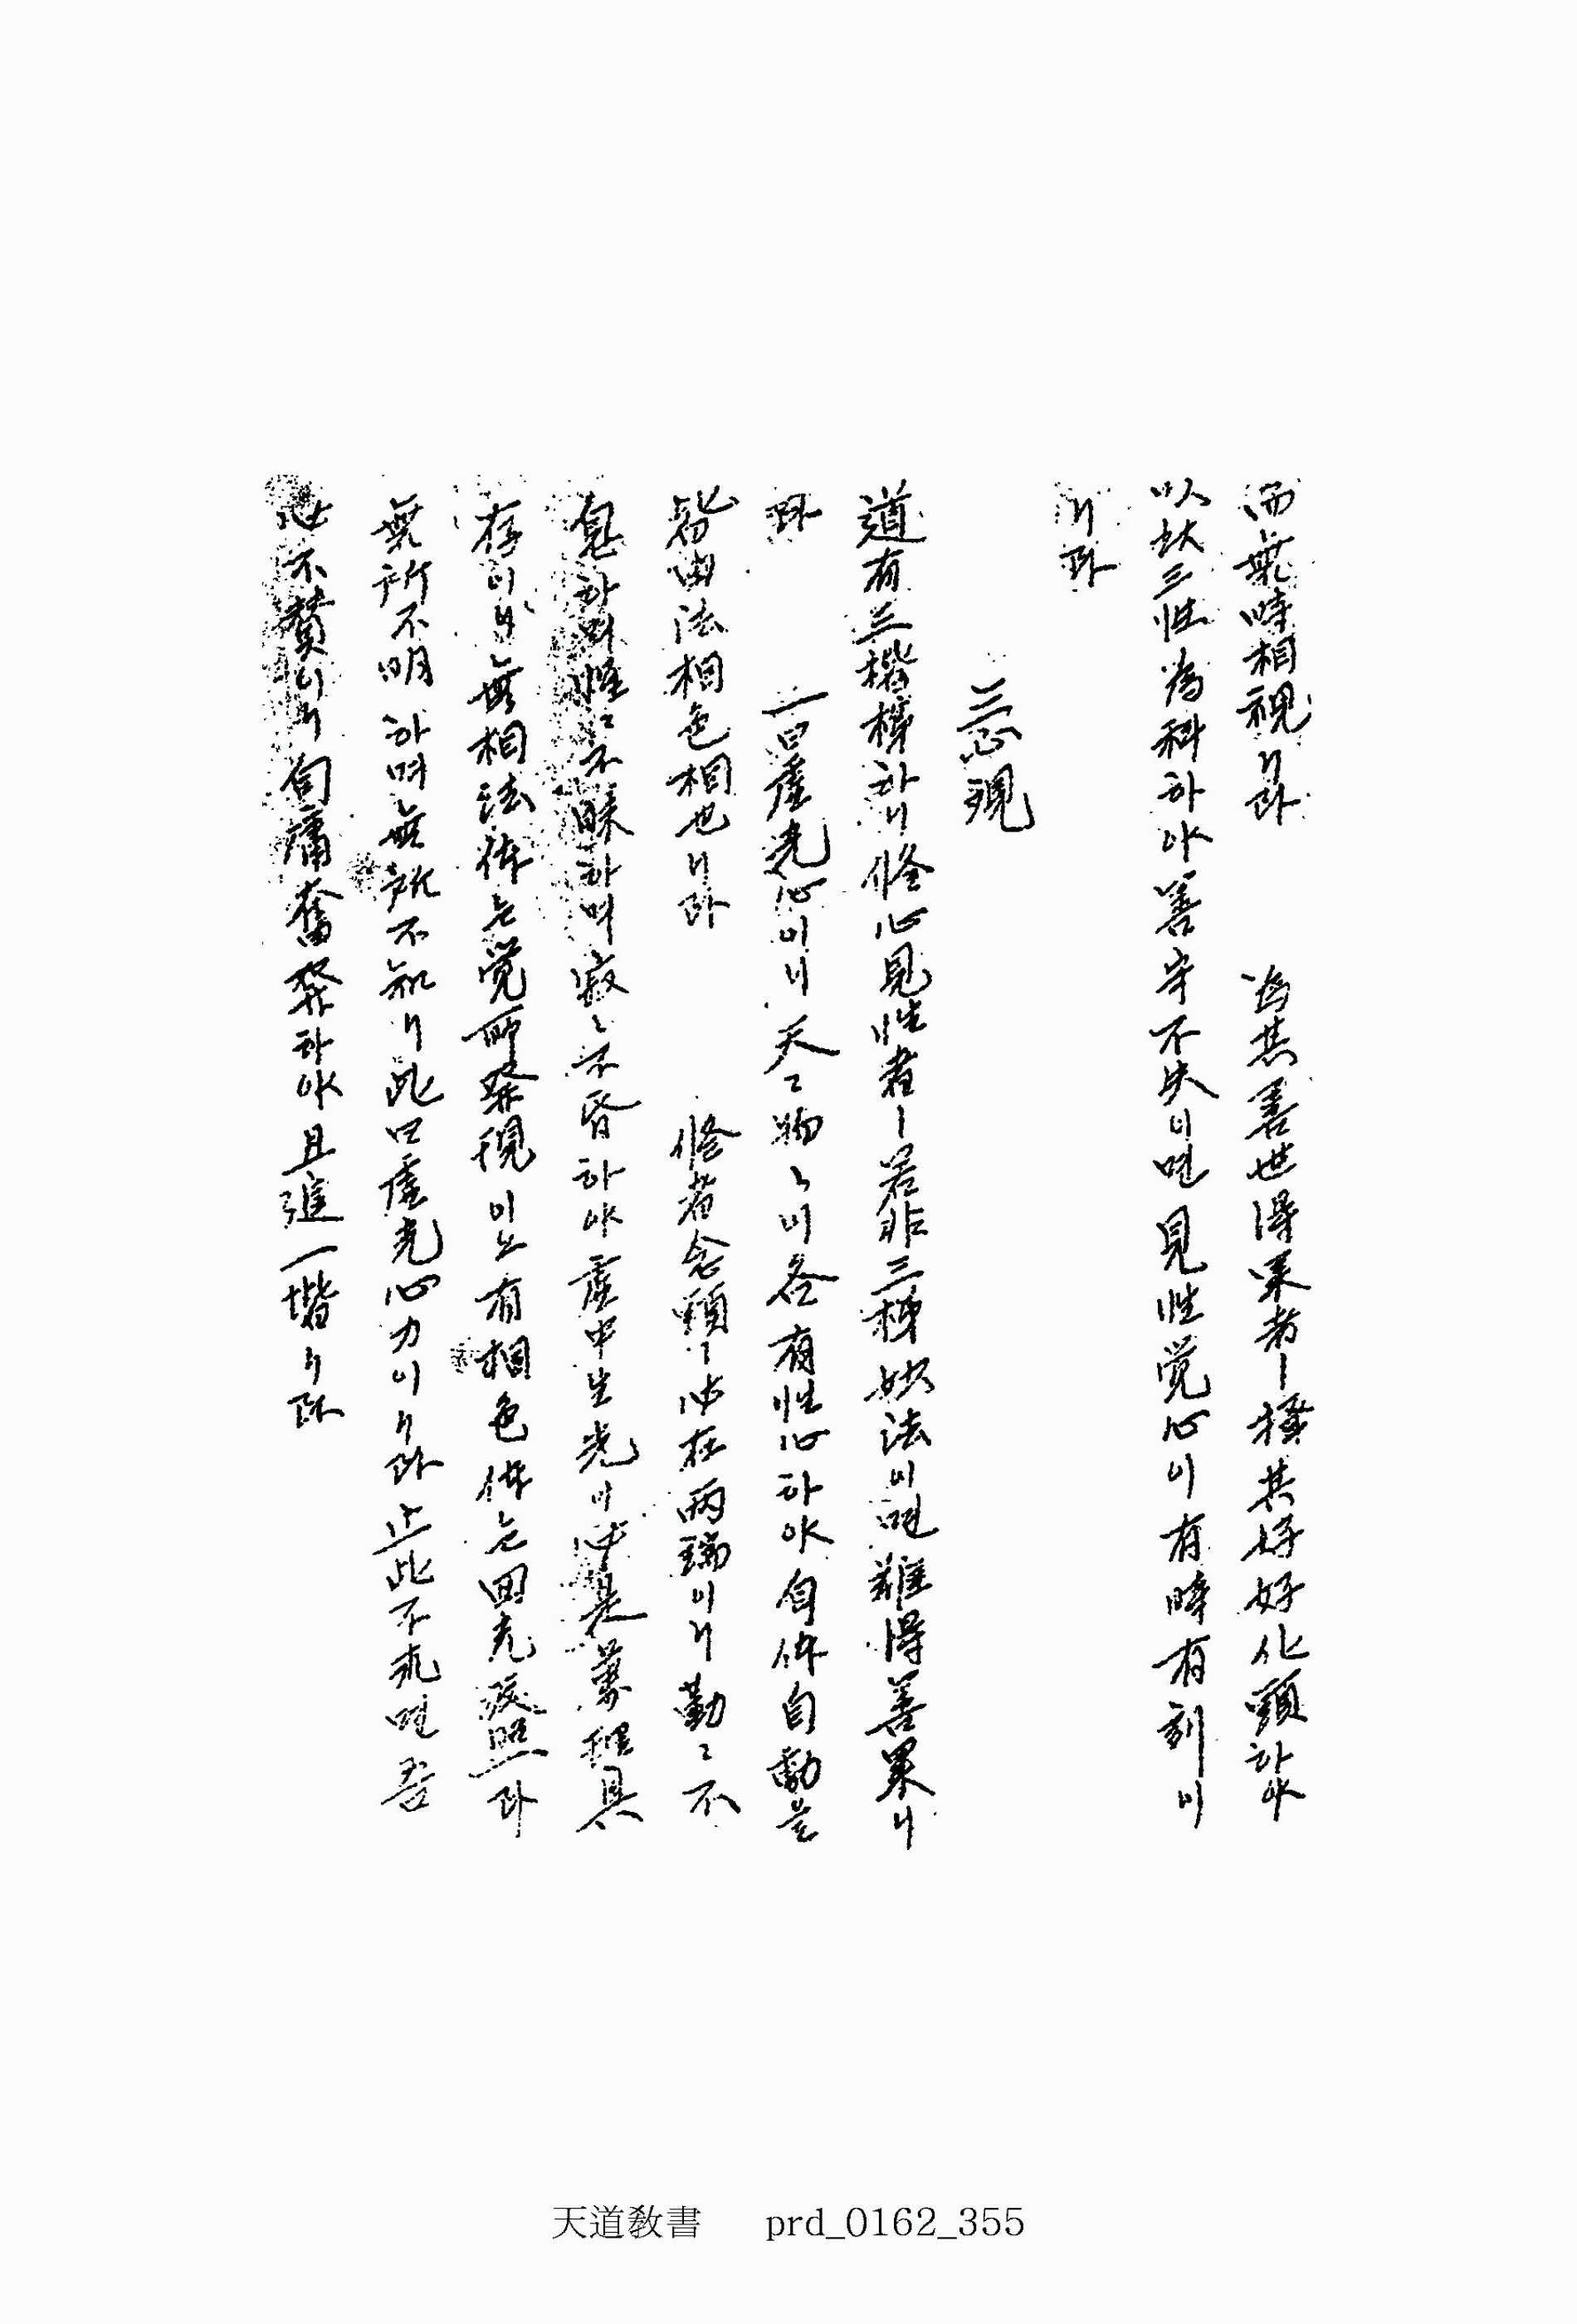 而無時相視니라 為其善世得果者ㅣ摠其好好化頭하야
以此三性為科하야善守不失이면見性覺心이有時有刻이
니라
三心觀
道有三楷梯하니修心見性者ㅣ若非三梯妙法이면難得善果니
라 一曰虛光心이니天天物物이各有性心하야自体自動은
皆由法相色相也니라 修者念頭ㅣ必在兩端이니勤勤不
息하며惺惺不昧하며寂寂不昏하야虛中生光이必是萬理具
存이니無相法体는覺所發現이요有相色体는回光返照라
無所不明하며無所不知니此曰虛光心力이니라止此不求면吾
必不贊이니自庸奮發하야且進一階니라
天道敎書 prd_0162_355